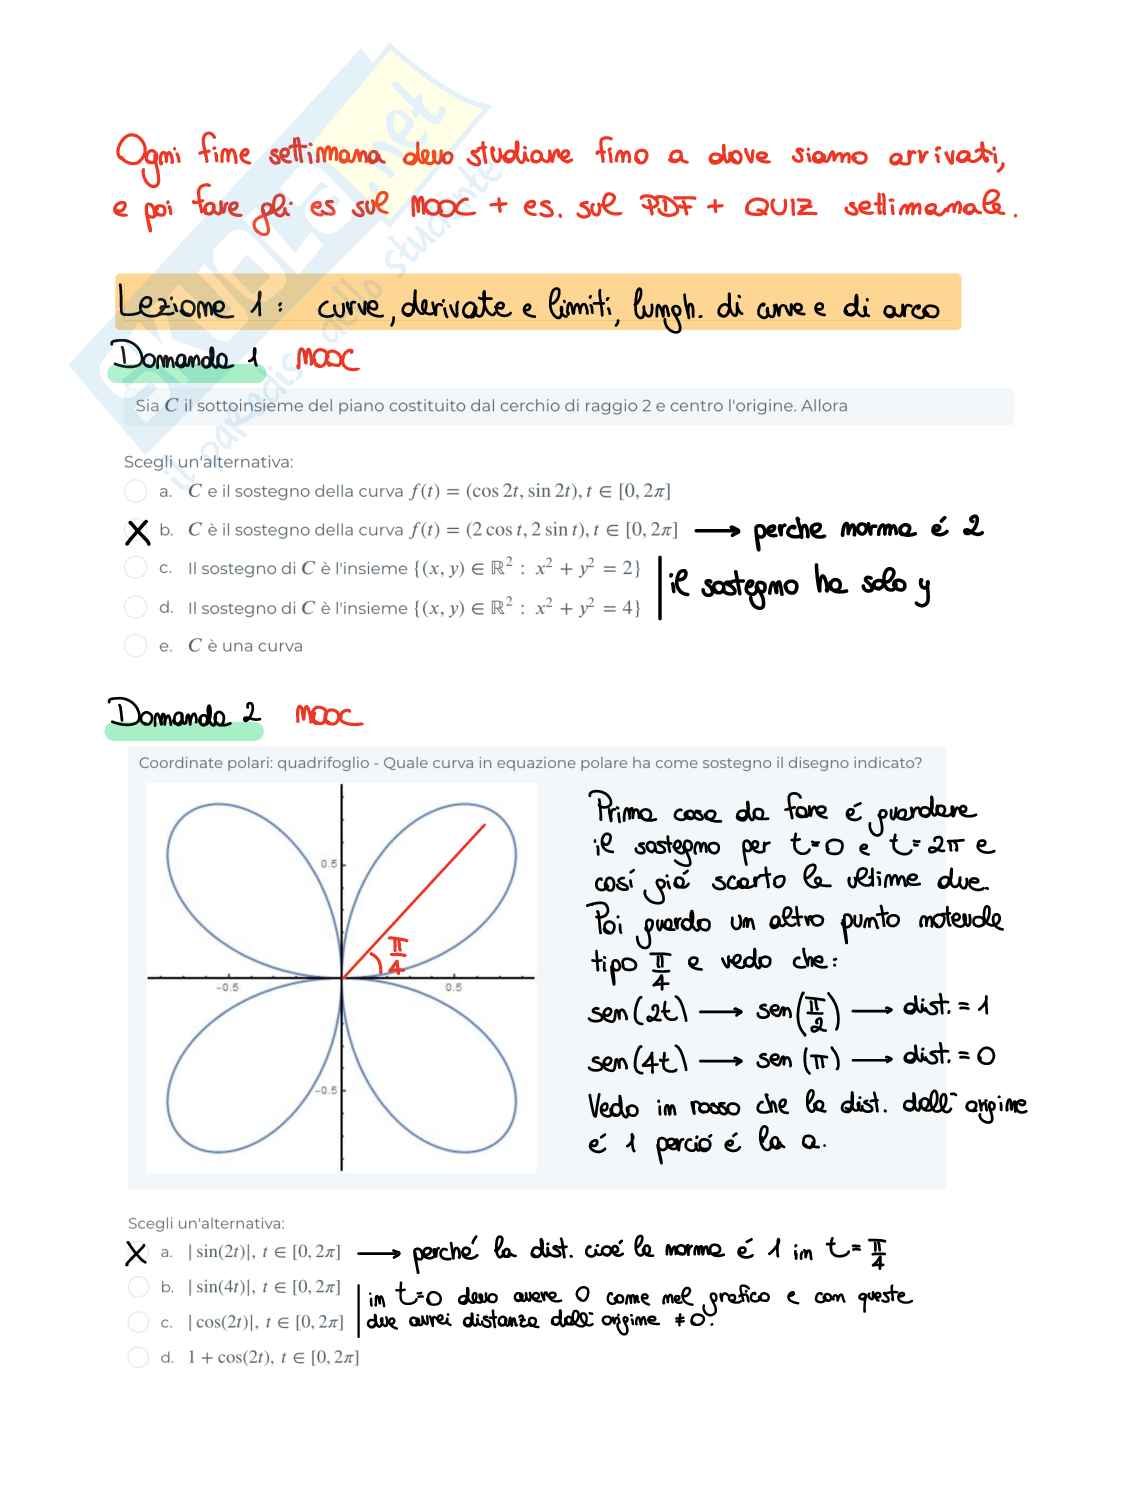 Ogni fine settimana devo studiare fino a dove siamo arrivati,
e poi fare gli es sul MOOC + es. sul PDF + QUIZ settimanale.
SKUOLA.net
il paradiso dello studente
Lezione 1: curve, derivate e limiti, lungh. di curve e di arco
Domanda 1 MOOC
Sia C il sottoinsieme del piano costituito dal cerchio di raggio 2 e centro l'origine. Allora
Scegli un'alternativa:
a. C e il sostegno della curva f(t) = (cos 2t, sin 2t), t ∈ [0, 2π]
X b. C è il sostegno della curva f(t) = (2 cos t, 2 sin t), t ∈ [0, 2π] → perche norma é 2
c. Il sostegno di C è l'insieme {(x, y) ∈ ℝ² : x² + y² = 2}
d. Il sostegno di C è l'insieme {(x, y) ∈ ℝ² : x² + y² = 4} | il sostegno ha solo y
e. C è una curva
Domanda 2 MOOC
Coordinate polari: quadrifoglio - Quale curva in equazione polare ha come sostegno il disegno indicato?
0.5
-0.5
0.5
-0.5
π/4
Prima cosa da fare é guardare
il sostegno per t=0 e t=2π e
cosí giá scarto le ultime due.
Poi guardo un altro punto notevole
tipo π/4 e vedo che:
sen(2t) → sen(π/2) → dist. = 1
sen(4t) → sen(π) → dist. = 0
Vedo in rosso che la dist. dall' origine
é 1 perció é la a.
Scegli un'alternativa:
X a. | sin(2t)|, t ∈ [0, 2π] → perché la dist. cioé la norma é 1 in t = π/4
b. | sin(4t)|, t ∈ [0, 2π]
c. | cos(2t)|, t ∈ [0, 2π]
d. 1 + cos(2t), t ∈ [0, 2π]
in t=0 devo avere 0 come nel grafico e con queste
due avrei distanza dall' origine ≠ 0.